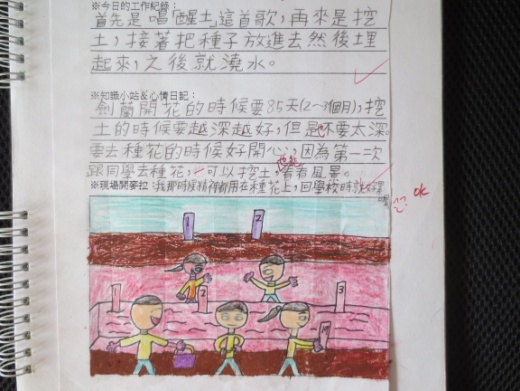 ※今日的工作紀錄:
首先是唱「醒土」這首歌,再來是挖
土,接著把種子放進去然後埋
起來,之後就澆水。
※知識小站&心情日記:
劍蘭開花的時候要85天(2~3個月),挖
土的時候要越深越好,但是不要太深。
要去種花的時候好開心,因為第一次
跟同學去種花,可以挖土,看看風景。
※現場開麥拉:我那時候精神都用在種花上,回學校時就
OK
1
2
2
3